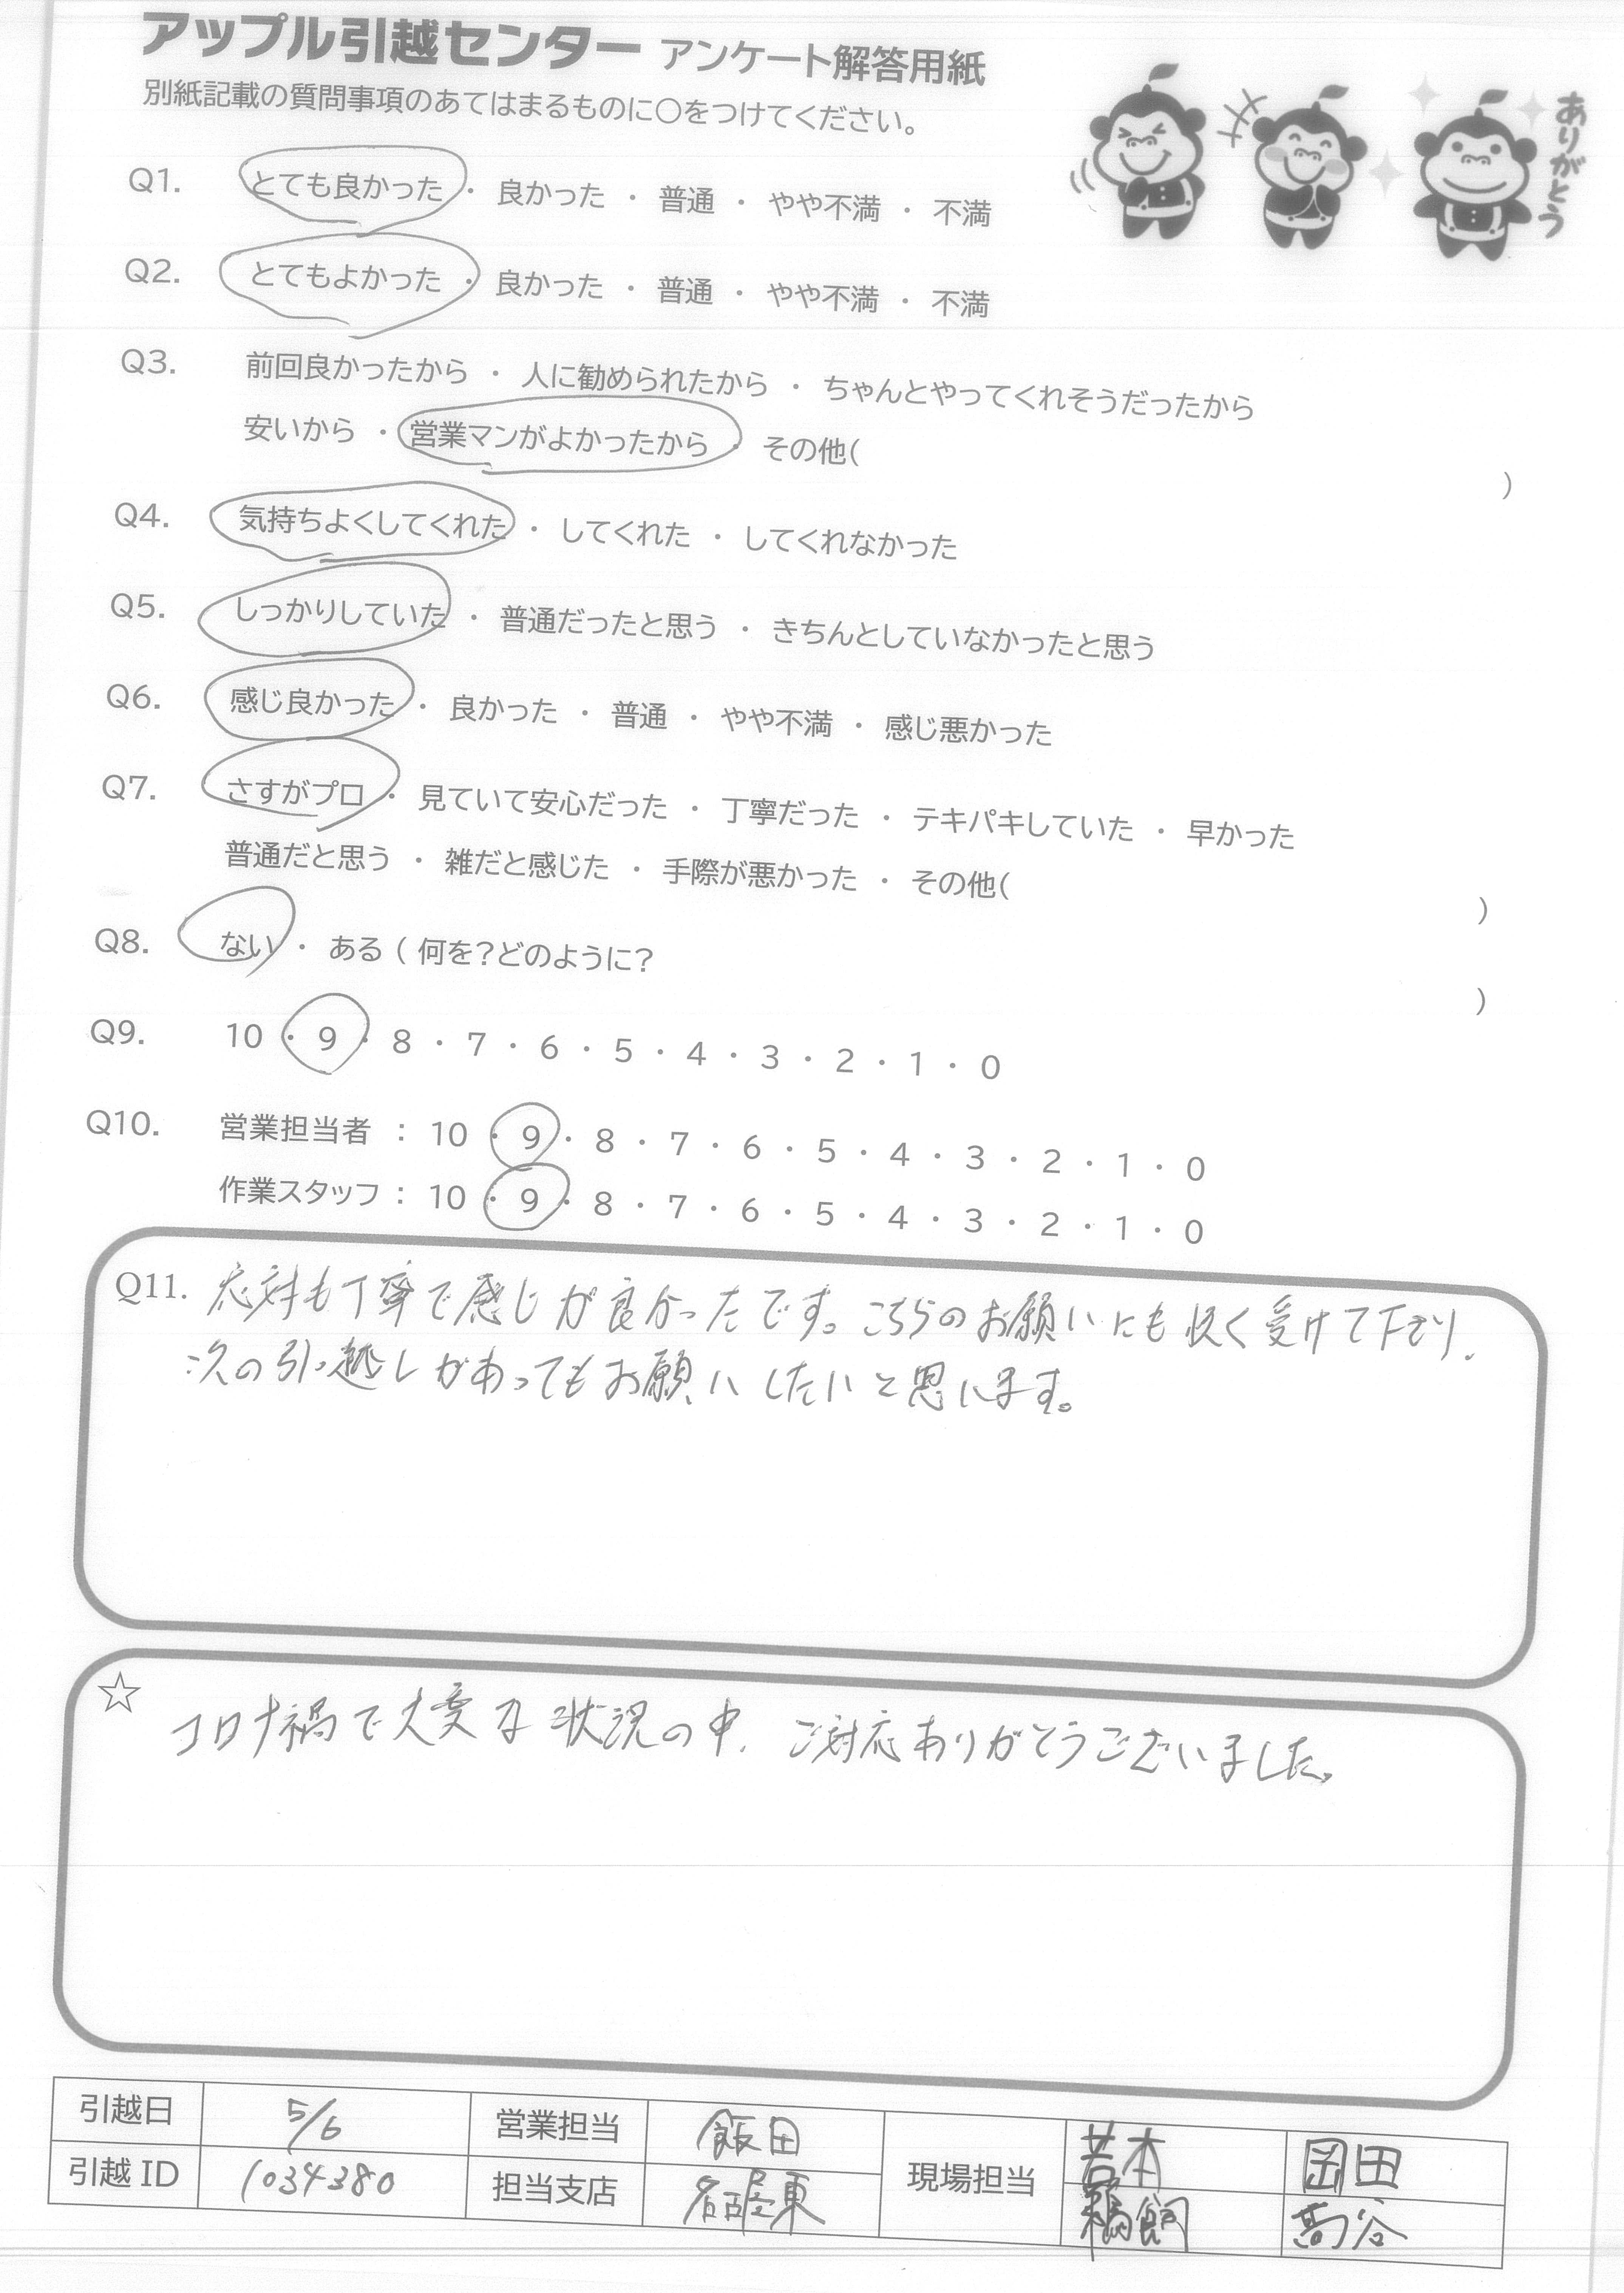 アップル引越センター アンケート解答用紙
別紙記載の質問事項のあてはまるものに○をつけてください。
ありがとう
Q1. とても良かった ・ 良かった ・ 普通 ・ やや不満 ・ 不満
Q2. とてもよかった ・ 良かった ・ 普通 ・ やや不満 ・ 不満
Q3. 前回良かったから ・ 人に勧められたから ・ ちゃんとやってくれそうだったから
安いから ・ 営業マンがよかったから ・ その他( )
Q4. 気持ちよくしてくれた ・ してくれた ・ してくれなかった
Q5. しっかりしていた ・ 普通だったと思う ・ きちんとしていなかったと思う
Q6. 感じ良かった ・ 良かった ・ 普通 ・ やや不満 ・ 感じ悪かった
Q7. さすがプロ ・ 見ていて安心だった ・ 丁寧だった ・ テキパキしていた ・ 早かった
普通だと思う ・ 雑だと感じた ・ 手際が悪かった ・ その他( )
Q8. ない ・ ある ( 何を?どのように? )
Q9. 10 ・ 9 ・ 8 ・ 7 ・ 6 ・ 5 ・ 4 ・ 3 ・ 2 ・ 1 ・ 0
Q10. 営業担当者 : 10 ・ 9 ・ 8 ・ 7 ・ 6 ・ 5 ・ 4 ・ 3 ・ 2 ・ 1 ・ 0
作業スタッフ : 10 ・ 9 ・ 8 ・ 7 ・ 6 ・ 5 ・ 4 ・ 3 ・ 2 ・ 1 ・ 0
Q11. 応対も丁寧で感じが良かったです。こちらのお願いにも快く受けて下さり、
次の引っ越しがあってもお願いしたいと思います。
☆ コロナ禍で大変な状況の中、ご対応ありがとうございました。
引越日 5/6 営業担当 飯田 現場担当 若本 岡田
引越 ID 1034380 担当支店 名古屋東 鵜飼 高谷